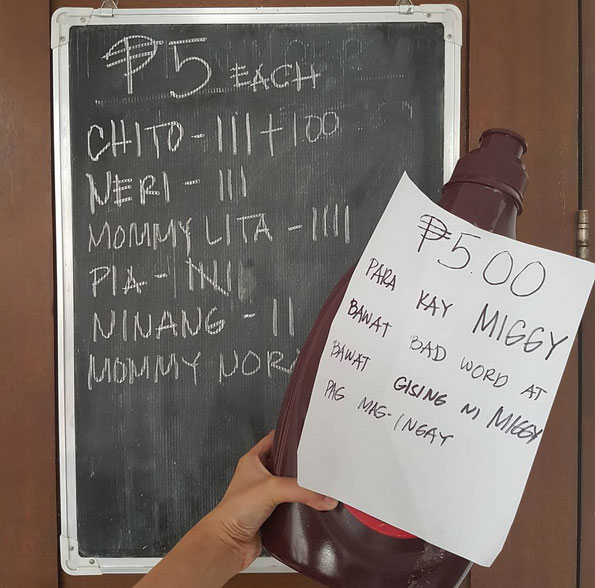 ₱5 EACH
CHITO - III + 100
NERI - III
MOMMY LITA - IIII
PIA -
NINANG - II
MOMMY NORA
₱5.00
PARA KAY MIGGY
BAWAT BAD WORD AT
BAWAT GISING NI MIGGY
PAG MAG-INGAY